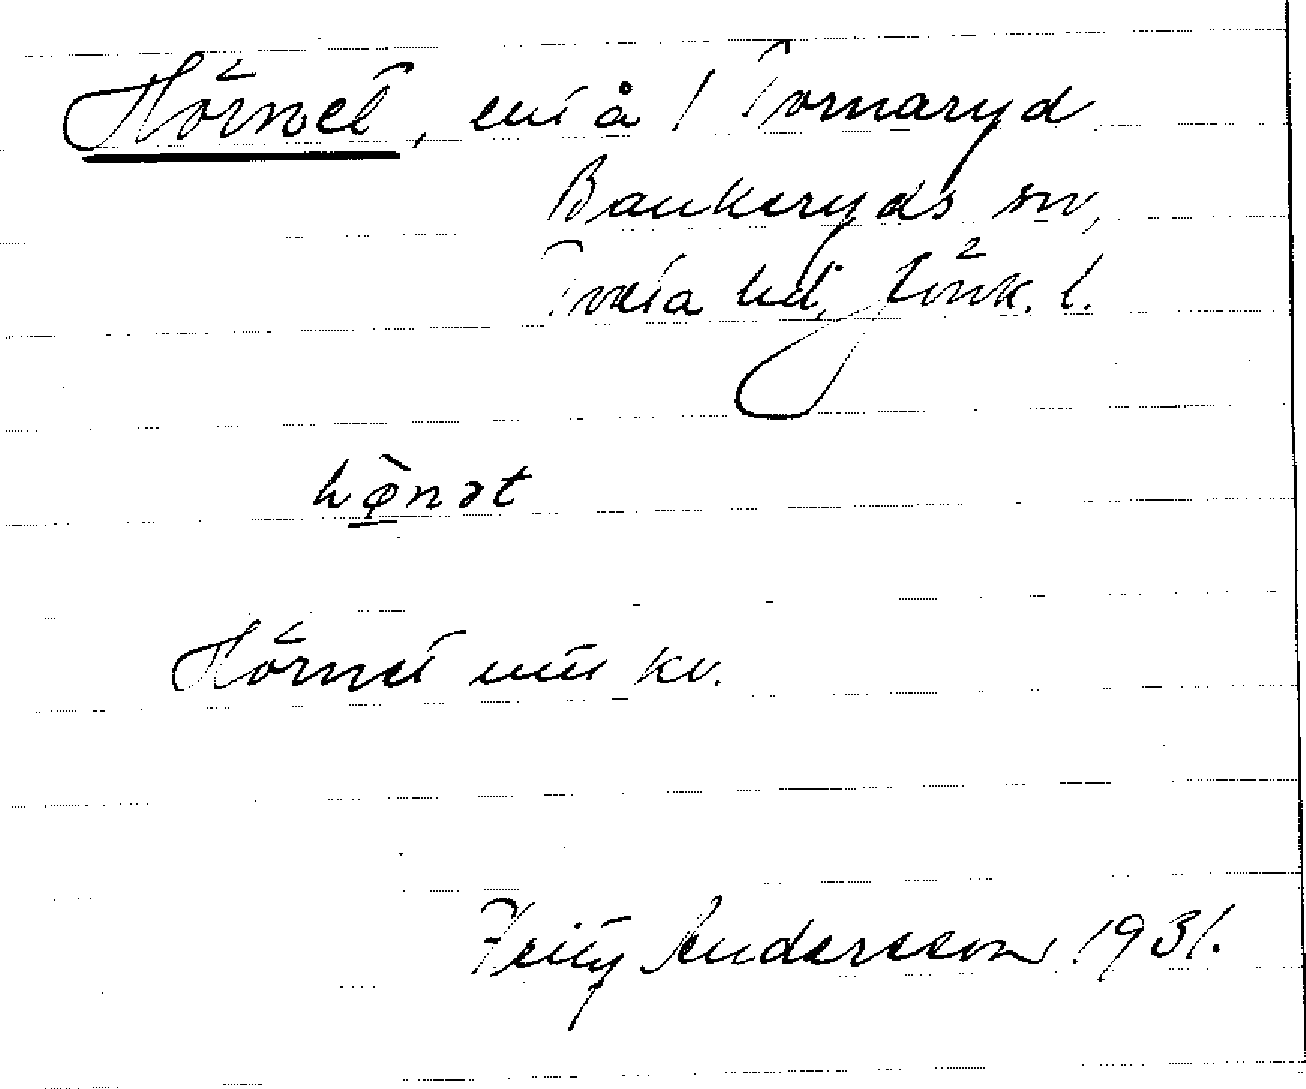 Hörnet, å 1 Tornaryd
Bankeryds sn,
Tveta hd, Jönk. l.
hø̀nət
Hörnet kv.
Fritz Andersson 1931.